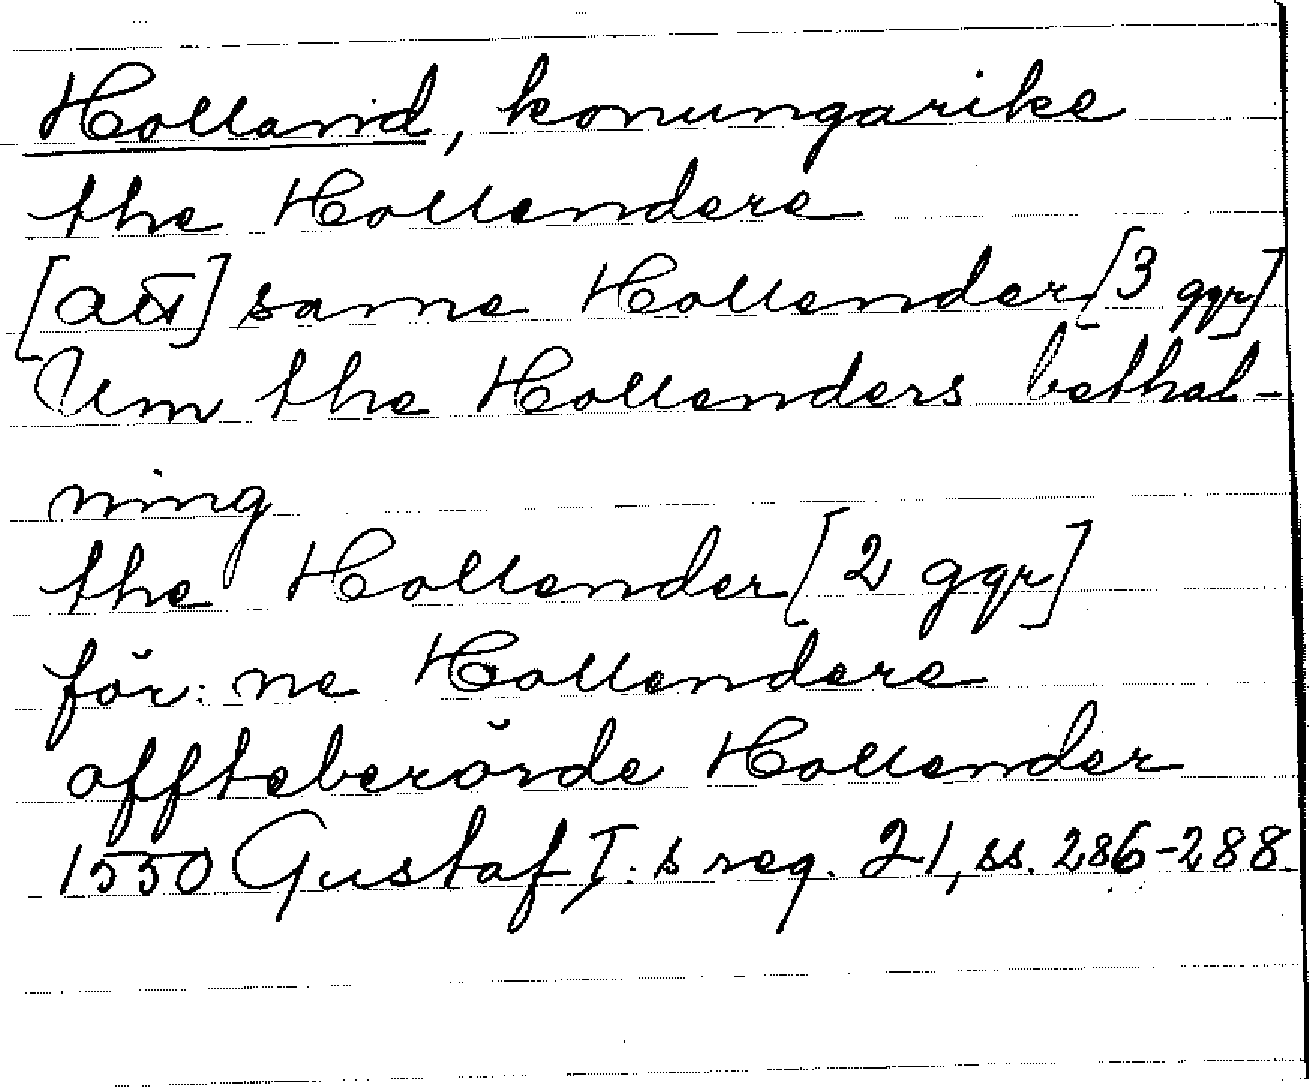 Holland, konungarike
the Hollendere
[att] same Hollender [3 ggr]
Um the Hollenders bethal-
ning
the Hollender [2 ggr]
för:ne Hollendere
offteberörde Hollender
1550 Gustaf I:s reg. 21, ss. 286-288.